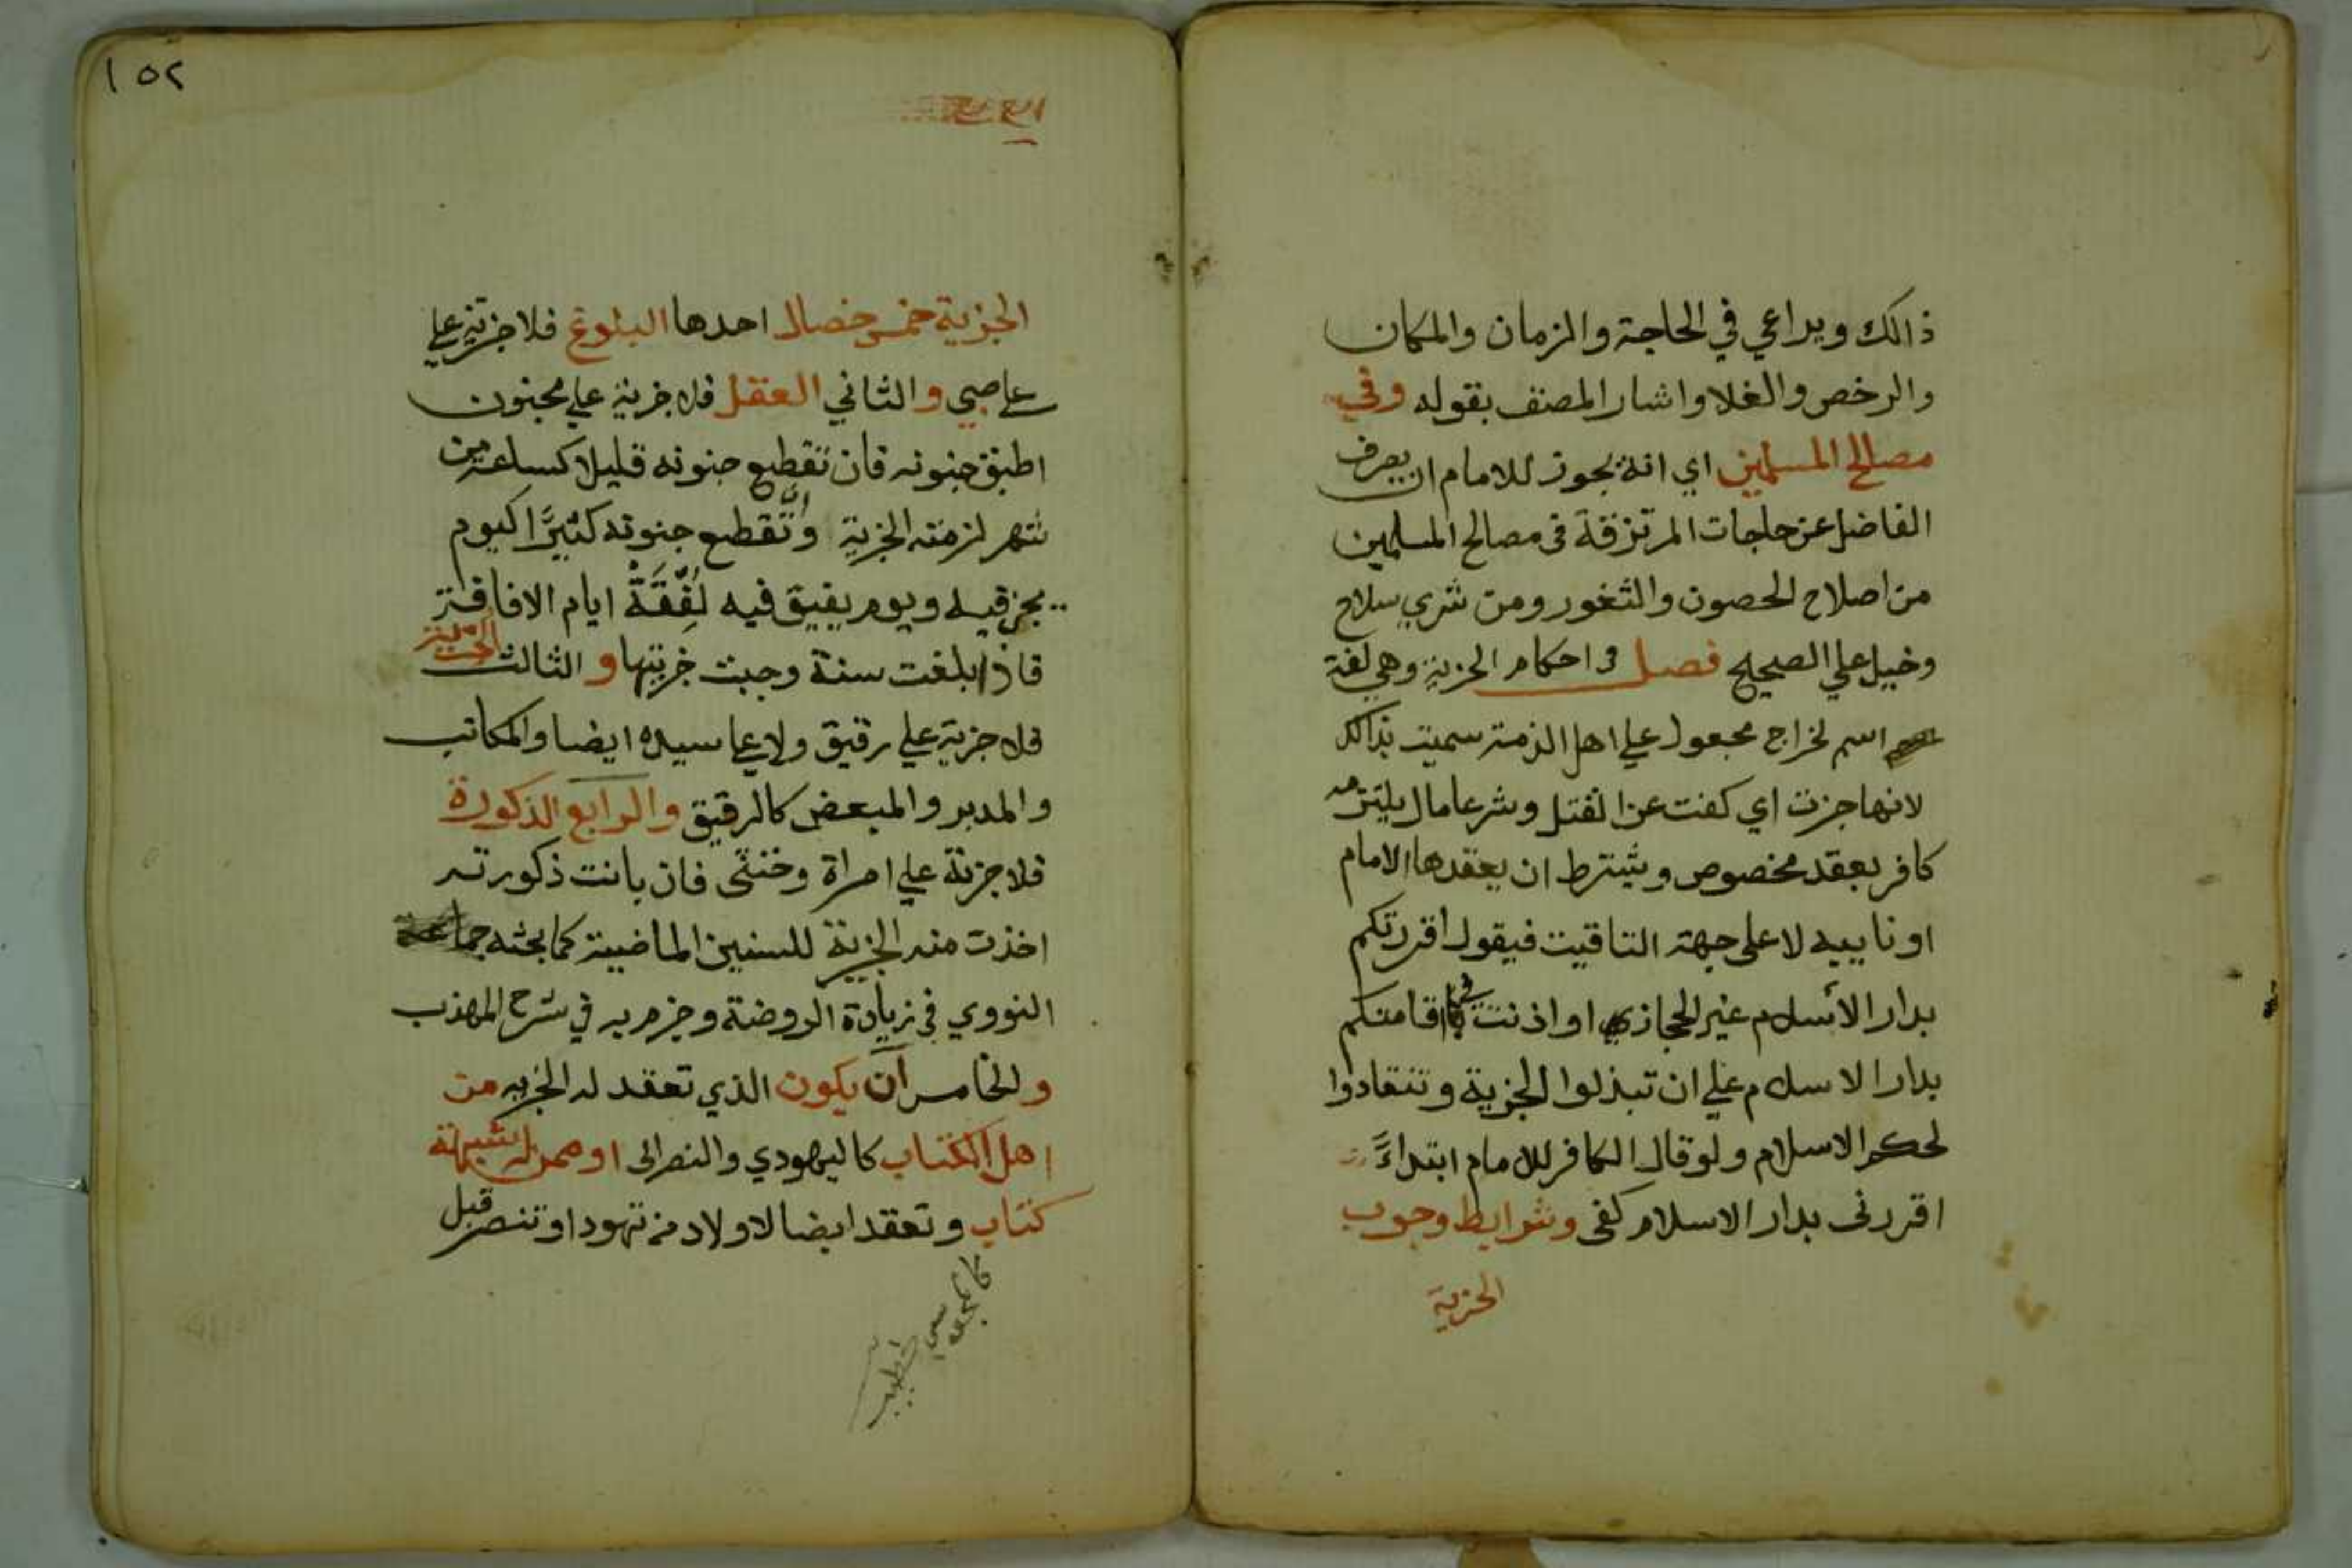 ذالك ويراعي في الحاجة والزمان والمكان
والرخص والغلا واشار المصنف بقوله وفي
مصالح المسلمين اي انه يجوز للامام ان يصرف
الفاضل عن حاجات المرتزقة في مصالح المسلمين
من اصلاح الحصون والثغور ومن شري سلاح
وخيل علي الصحيح فصل في احكام الجزية وهي لغة
اسم لخراج مجعول علي اهل الذمة سميت بذالك
لانها جزت اي كفت عن القتل وشرعا مال يلتزمه
كافر بعقد مخصوص ويشترط ان يعقدها الامام
او نايبه لا علي جهة التاقيت فيقول اقررتكم
بدار الاسلام غير الحجاز او اذنت في اقامتكم
بدار الاسلام علي ان تبذلوا الجزية وتنقادوا
لحكم الاسلام ولو قال الكافر للامام ابتداءً
اقررني بدار الاسلام كفي وشرايط وجوب
الجزية
١٥٢
الجزية خمس خصال احدها البلوغ فلا جزية علي
علي صبي والثاني العقل فلا جزية علي مجنون
اطبق جنونه فان تقطع جنونه قليلا كساعة من
شهر لزمته الجزية وان تقطع جنونه كثيرًا كيوم
يجن فيه ويوم يفيق فيه لُفِّقَةْ ايام الافاقة
فاذا بلغت سنة وجبت جزيتها و الثالث الحرية
فلا جزية علي رقيق ولا علي سيده ايضا والمكاتب
والمدبر والمبعض كالرقيق والرابع الذكورة
فلا جزية علي امراة وخنثى فان بانت ذكورته
اخذت منه الجزية للسنين الماضية كما بحثه
النووي في زيادة الروضة وجزم به في شرح المهذب
والخامس ان يكون الذي تعقد له الجزيه من
اهل الكتاب كاليهودي والنصراني او ممن له شبهة
كتاب وتعقد ايضا لاولاد من تهود او تنصر قبل